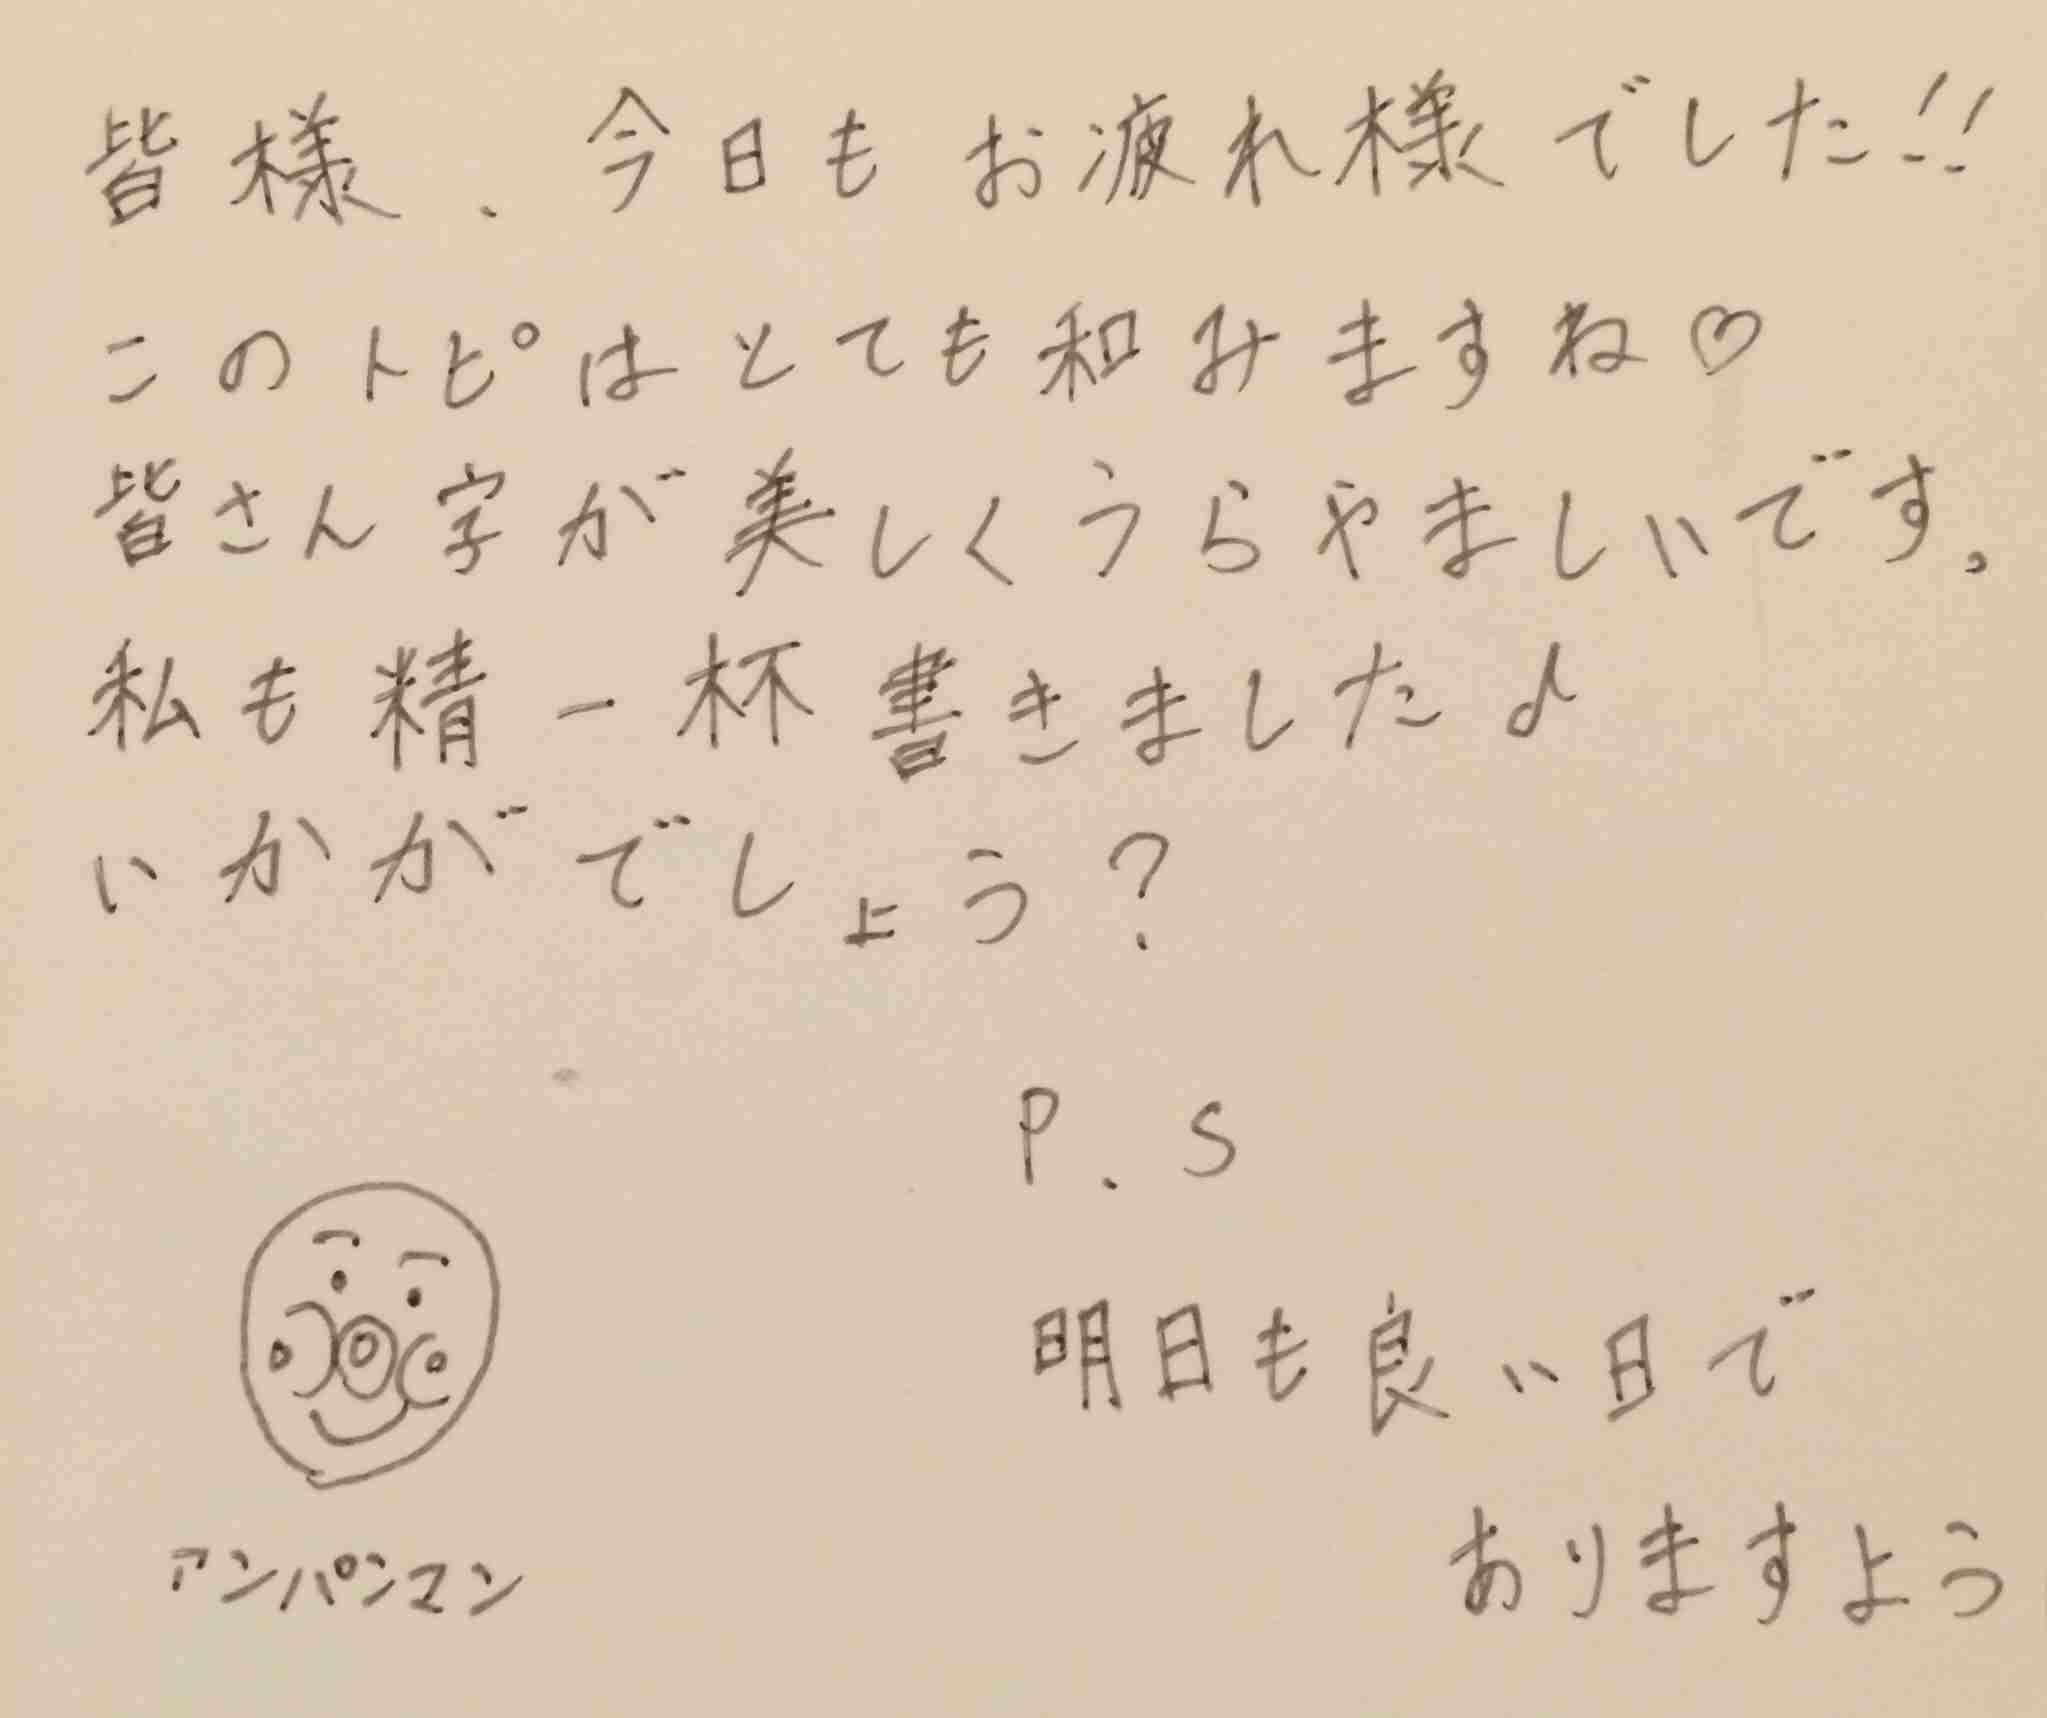 皆様、今日もお疲れ様でした!!
このトピはとても和みますね♡
皆さん字が美しくうらやましいです。
私も精一杯書きました♪
いかがでしょう?
P.S
明日も良い日で
ありますよう
アンパンマン